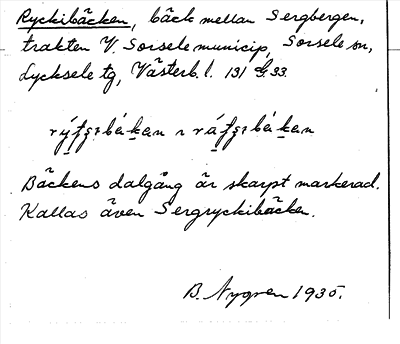 Ryckibäcken, bäck mellan Sergbergen,
trakten V. Sorsele municip, Sorsele sn,
Lycksele tg, Västerb. l. 131 33
Bäckens dalgång är skarpt markerad.
Kallas även Sergryckibäcken.
B. Nygren 1935.